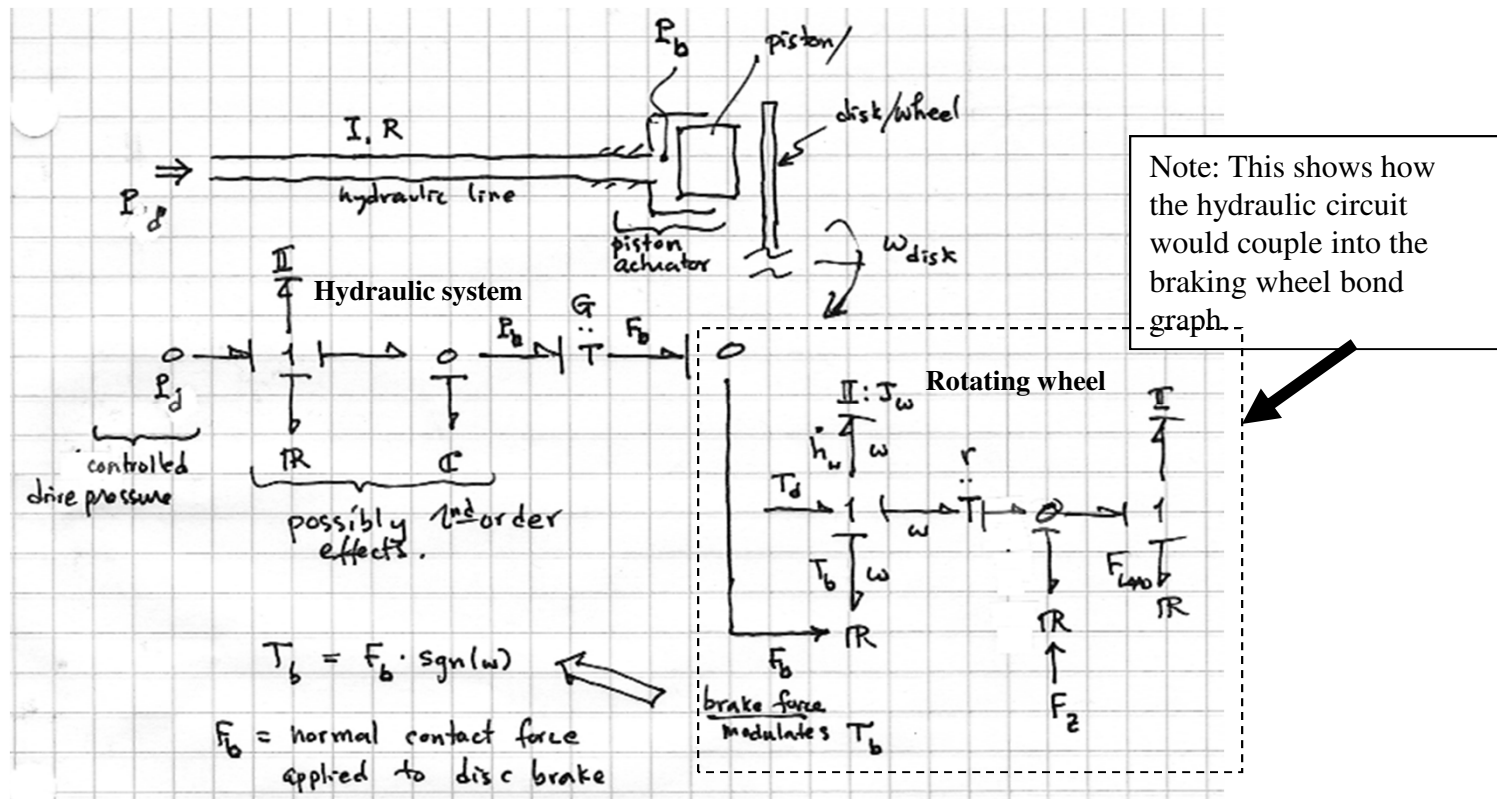 P_b
piston/
disk/wheel
I, R
P_d
hydraulic line
piston
actuator
ω_disk
Note: This shows how
the hydraulic circuit
would couple into the
braking wheel bond
graph.
I
Hydraulic system
G
P_b
T
F_b
0
1
0
0
P_d
R
C
controlled
drive pressure
possibly 2nd order
effects.
Rotating wheel
I : J_w
I
ḣ_w
ω
r
T_d
1
ω
T
0
1
T_b
ω
F_LOAD
R
R
R
F_b
F_z
brake force
modulates T_b
T_b = F_b · sgn(ω)
F_b = normal contact force
applied to disc brake